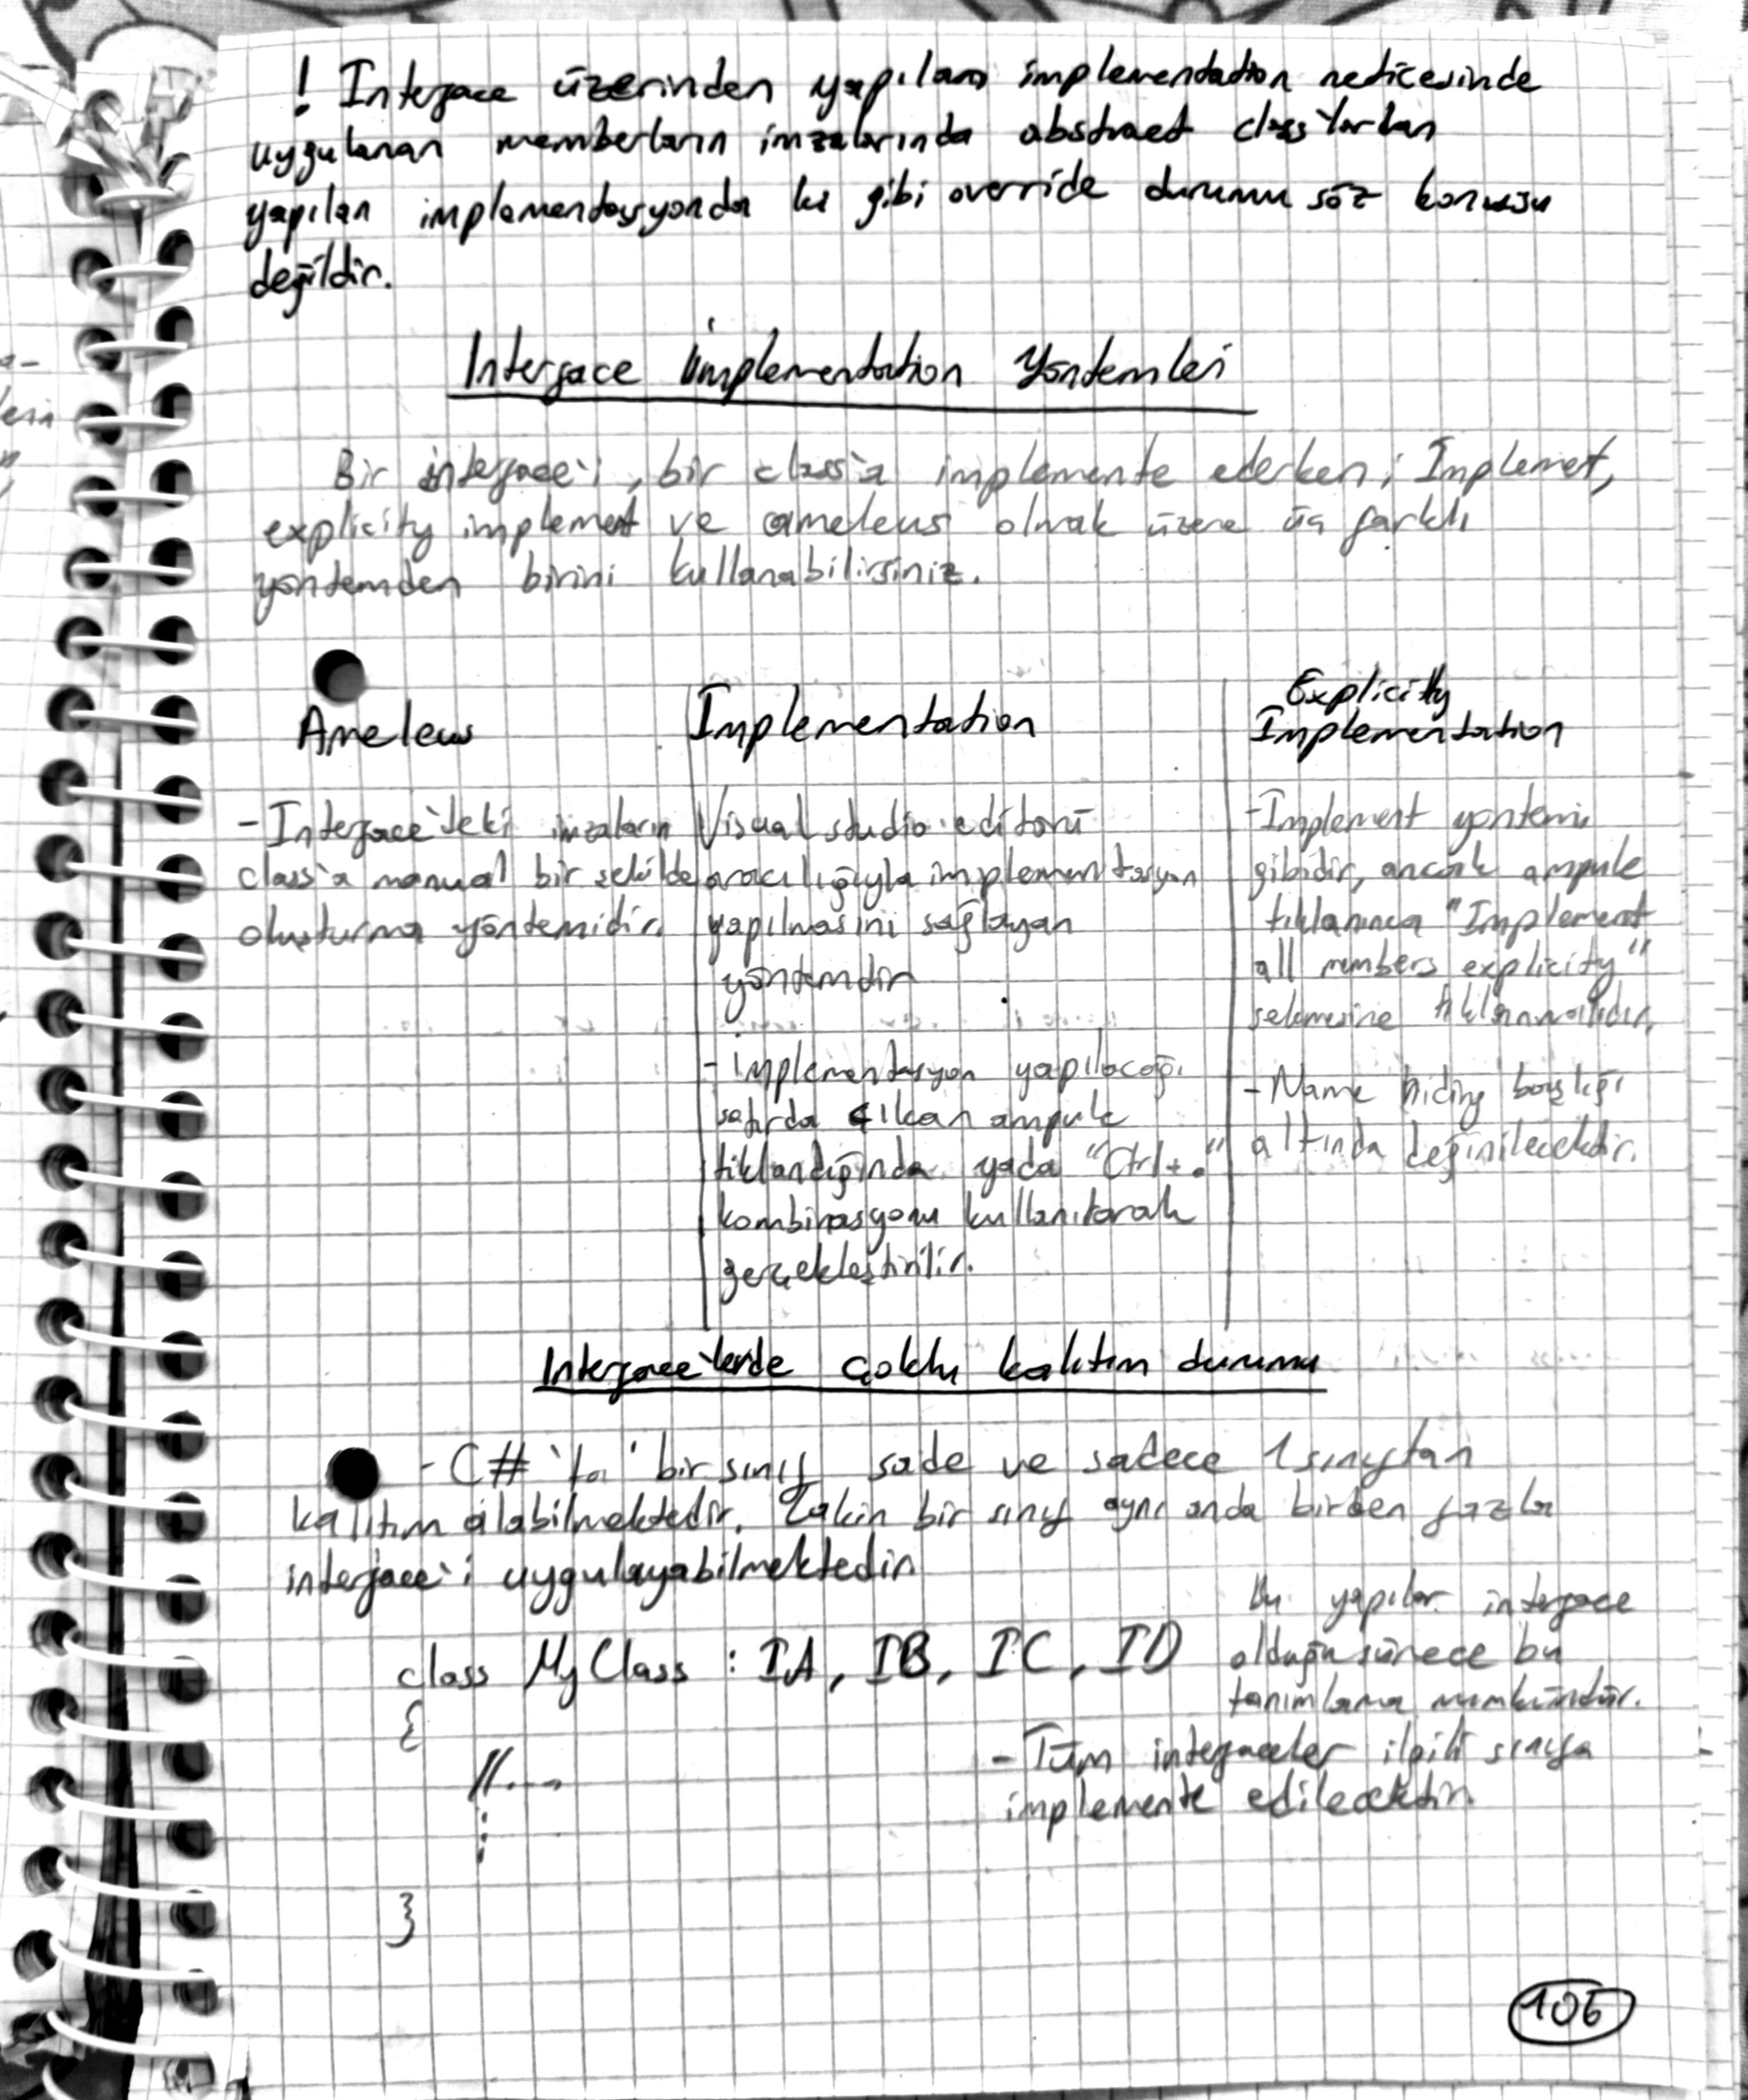 ! Interface üzerinden yapılan implementation neticesinde
uygulanan memberların imzalarında abstract class'lardan
yapılan implementasyonda ki gibi override durumu söz konusu
değildir.
Interface İmplementation Yöntemleri
Bir interface'i, bir class'a implemente ederken; Implemet,
explicity implement ve ameleus olmak üzere üç farklı
yöntemden birini kullanabilirsiniz.
Ameleus
- Interface'teki imzaların
class'a manual bir şekilde
oluşturma yöntemidir.
Implementation
Visual studio editörü
aracılığıyla implementasyon
yapılmasını sağlayan
yöntemdir
- implementasyon yapılacağı
satırda çıkan ampule
tıklandığında yada "Ctrl+."
kombinasyonu kullanılarak
gerçekleştirilir.
Explicitly
Implementation
- Implement yöntemi
gibidir, ancak ampule
tıklanınca "Implement
all members explicity"
sekmesine tıklanmalıdır.
- Name hiding başlığı
altında değinilecektir.
Interface'lerde çoklu kalıtım durumu
- C# 'ta' bir sınıf sade ve sadece 1 sınıftan
kalıtım alabilmektedir. Lakin bir sınıf aynı anda birden fazla
interface'i uygulayabilmektedir
class MyClass : IA, IB, IC, ID
{
//....
}
Bu yapılar interface
olduğu sürece bu
tanımlama mümkündür.
- Tüm interfaceler ilgili sınıfa
implemente edilecektir.
106